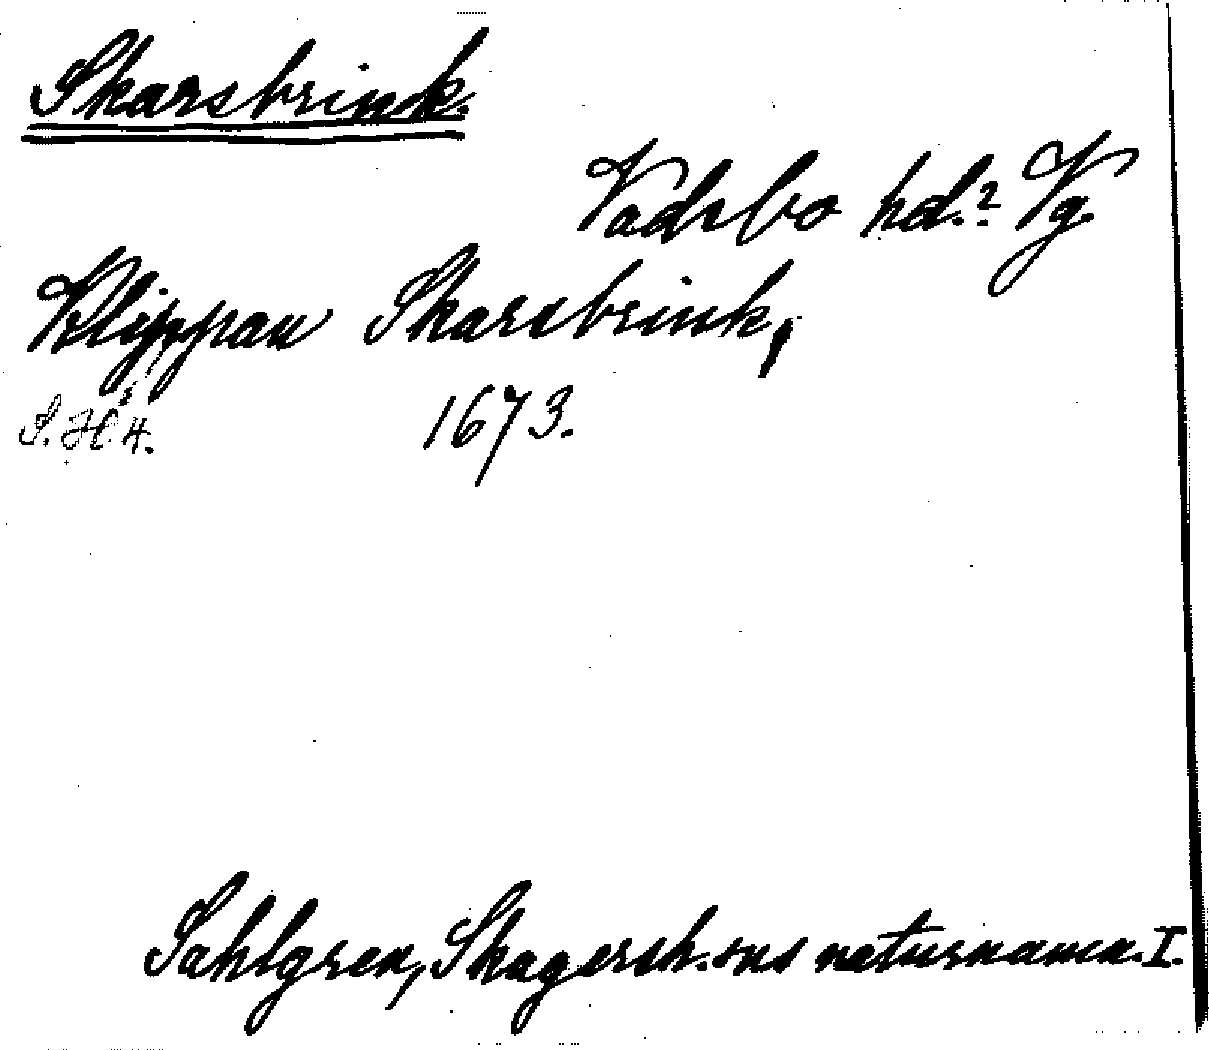 Skarsbrink.
Vadsbo hd.? Vg.
Klippan Skarsbrink,
S. H. 4. 1673.
Sahlgren, Skagersh. sns naturnamn. I.